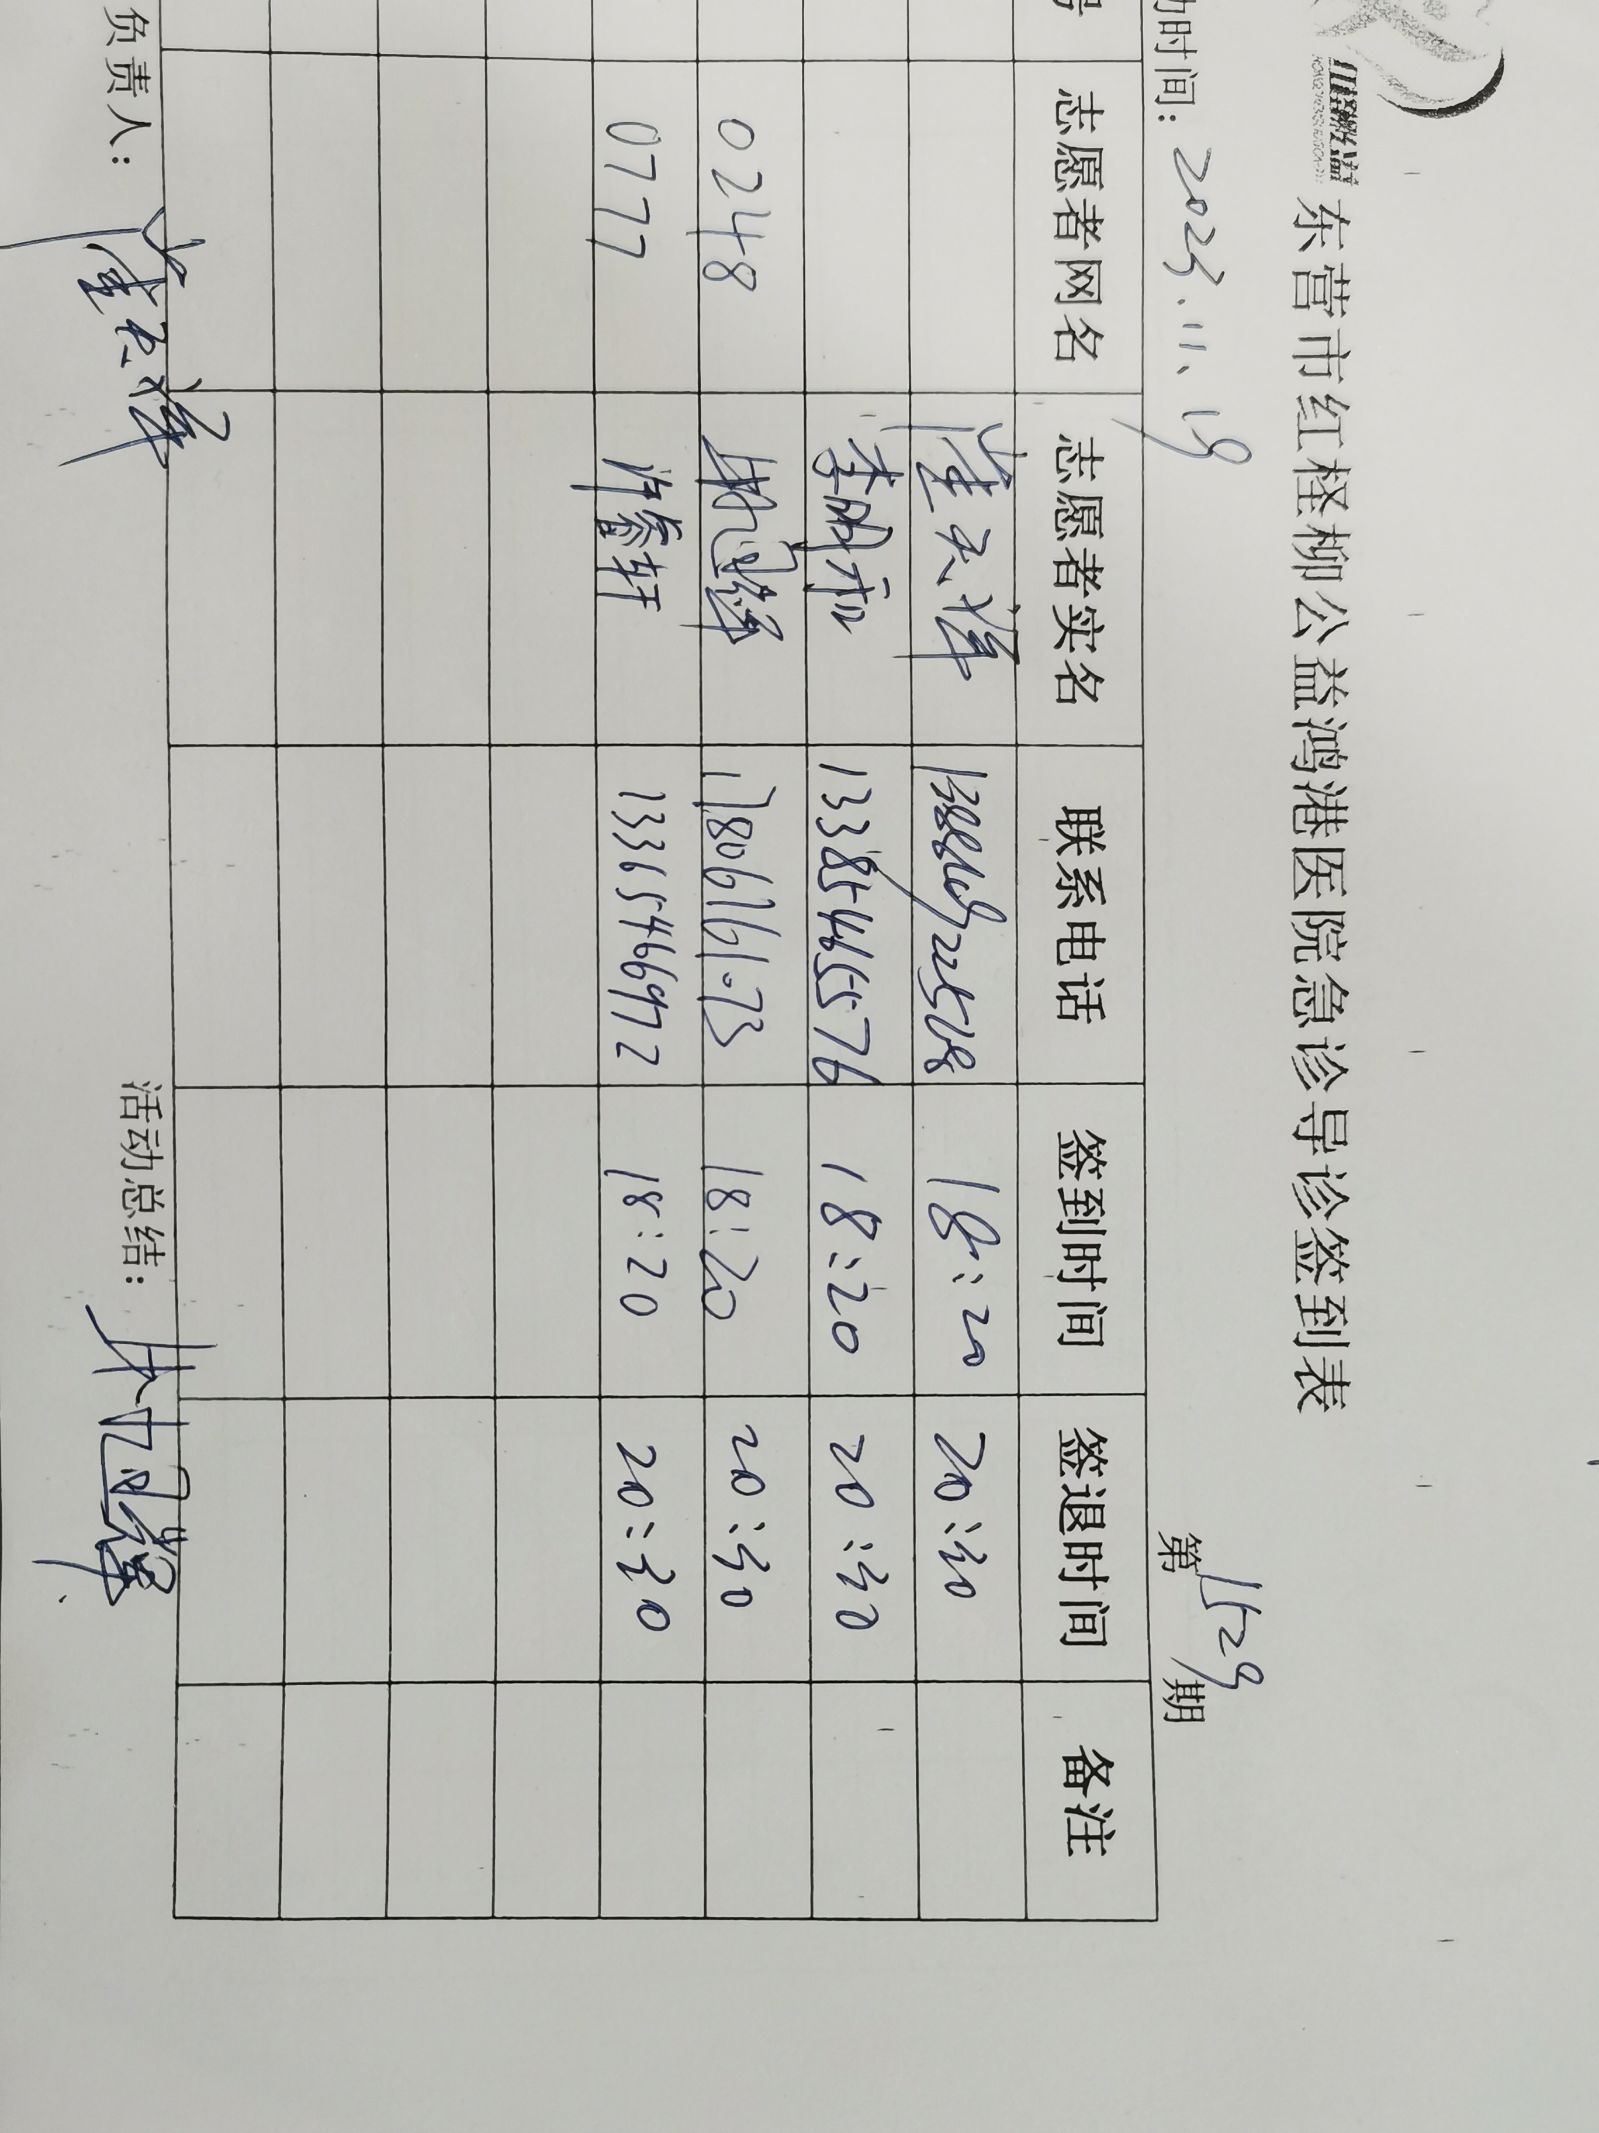 东营市红柽柳公益鸿港医院急诊导诊签到表
动时间: 2023.11.19 第1529期
号 志愿者网名 志愿者实名 联系电话 签到时间 签退时间 备注
崔天祥 18:20 20:30
李明和 13385465576 18:20 20:30
0248 17806161073 18:20 20:30
0777 许鲁轩 13365466972 18:20 20:30
负责人: 崔天祥 活动总结: